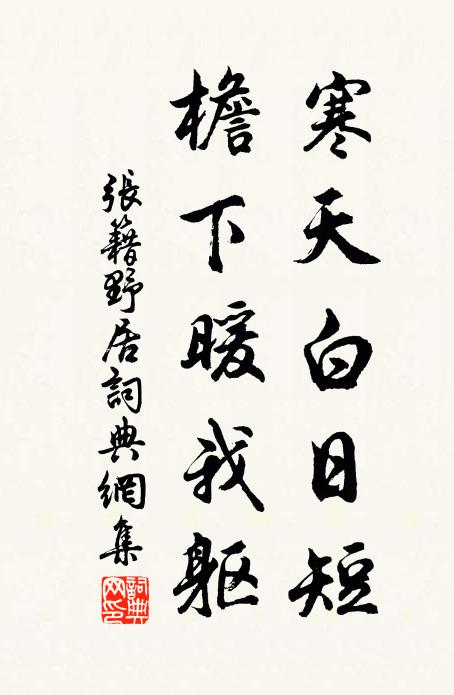 寒天白日短
檐下暖我躯
張籍野居詞典網集
詞典網印